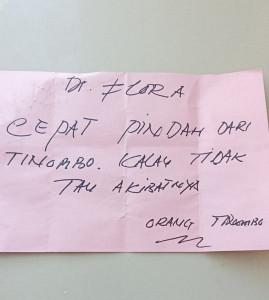 Dr. FLORA
CEPAT PINDAH DARI
TINOMBO. KALAU TIDAK
TAU AKIBATNYA
ORANG TINOMBO